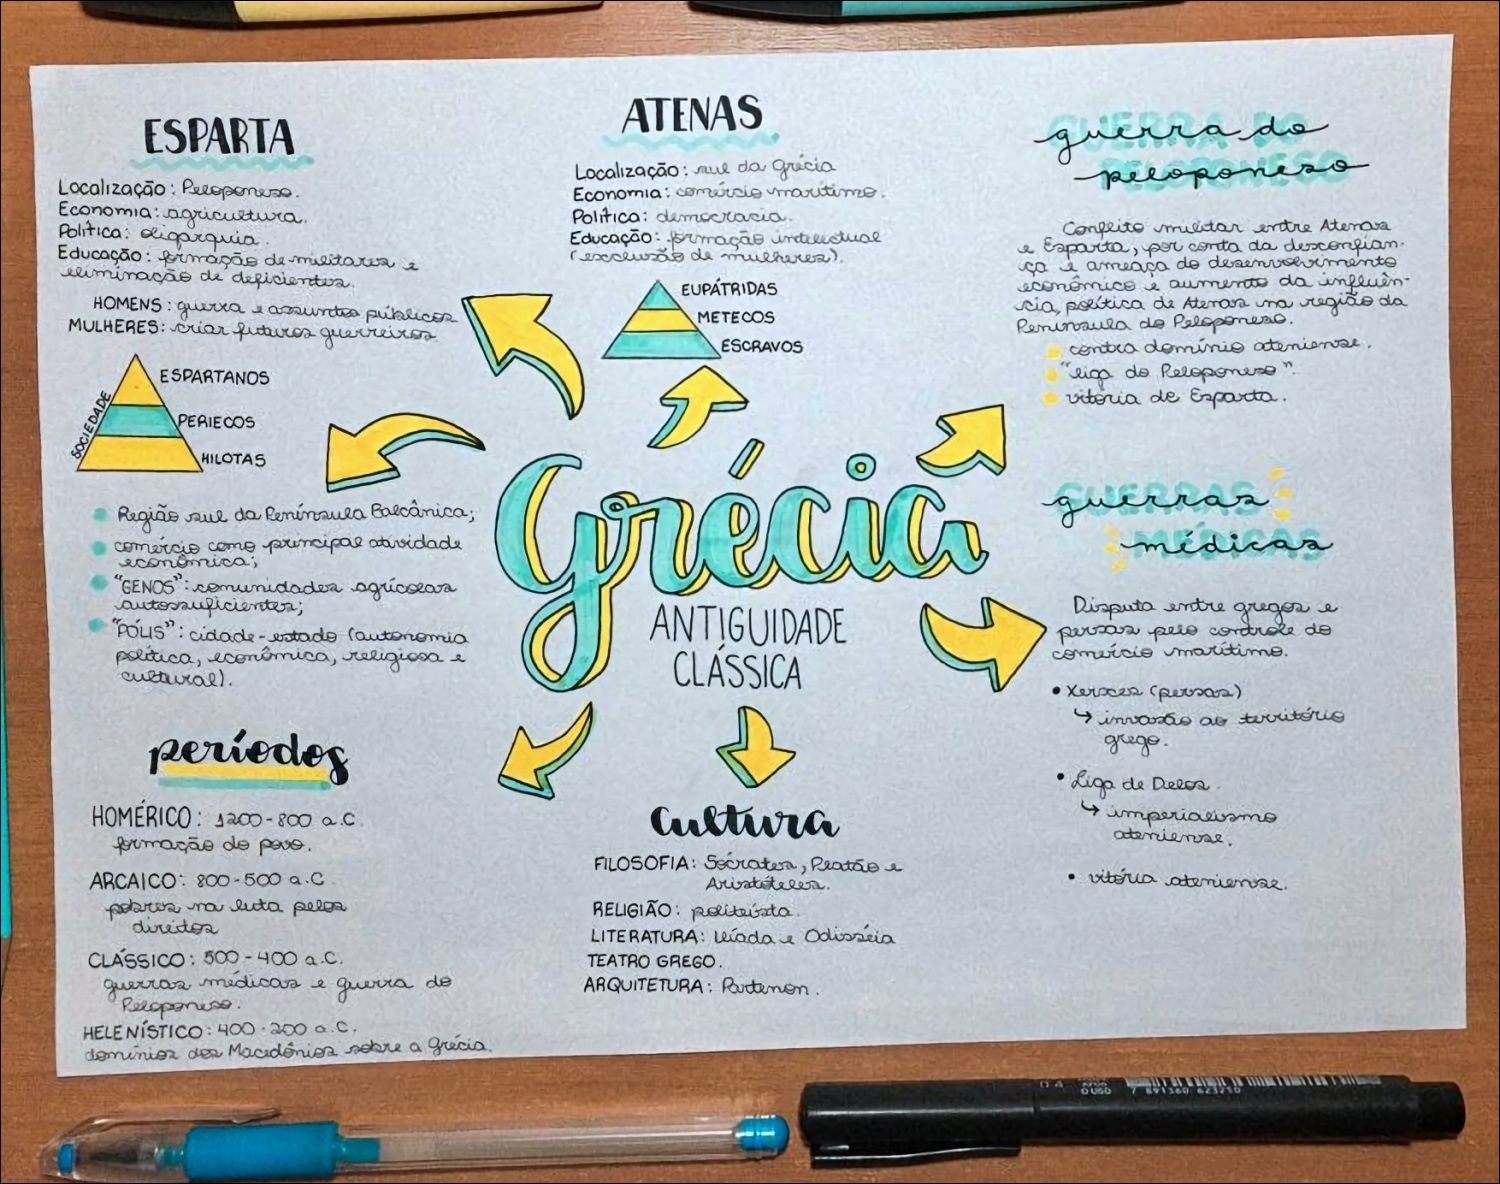 ESPARTA
Localização: Peloponeso.
Economia: agricultura.
Política: oligarquia.
Educação: formação de militares e
eliminação de deficientes.
HOMENS: guerra e assuntos públicos
MULHERES: criar futuros guerreiros
SOCIEDADE
ESPARTANOS
PERIECOS
HILOTAS
ATENAS
Localização: sul da Grécia
Economia: comércio marítimo.
Política: democracia.
Educação: formação intelectual
(exclusão de mulheres).
EUPÁTRIDAS
METECOS
ESCRAVOS
GUERRA DO
PELOPONESO
guerra do
peloponeso
Conflito militar entre Atenas
e Esparta, por conta da desconfian-
ça e ameaça do desenvolvimento
econômico e aumento da influên-
cia, política de Atenas na região da
Península do Peloponeso.
contra domínio ateniense.
"liga do Peloponeso".
vitória de Esparta.
Grécia
ANTIGUIDADE
CLÁSSICA
• Região sul da Península Balcânica;
• comércio como principal atividade
econômica;
• "GENOS": comunidades agrícolas
autossuficientes;
• "PÓLIS": cidade-estado (autonomia
política, econômica, religiosa e
cultural).
GUERRAS
MÉDICAS
guerras
médicas
Disputa entre gregos e
persas pelo controle do
comércio marítimo.
• Xerxes (persas)
↳ invasão ao território
grego.
• Liga de Delos.
↳ imperialismo
ateniense.
• vitória ateniense.
períodos
HOMÉRICO: 1200-800 a.C.
formação do povo.
ARCAICO: 800-500 a.C.
pobres na luta pelos
direitos
CLÁSSICO: 500-400 a.C.
guerras médicas e guerra do
Peloponeso.
HELENÍSTICO: 400-200 a.C.
domínios dos Macedônios sobre a Grécia.
Cultura
FILOSOFIA: Sócrates, Platão e
Aristóteles.
RELIGIÃO: politeísta.
LITERATURA: Ilíada e Odisséia
TEATRO GREGO.
ARQUITETURA: Partenon.
7 891360 623250